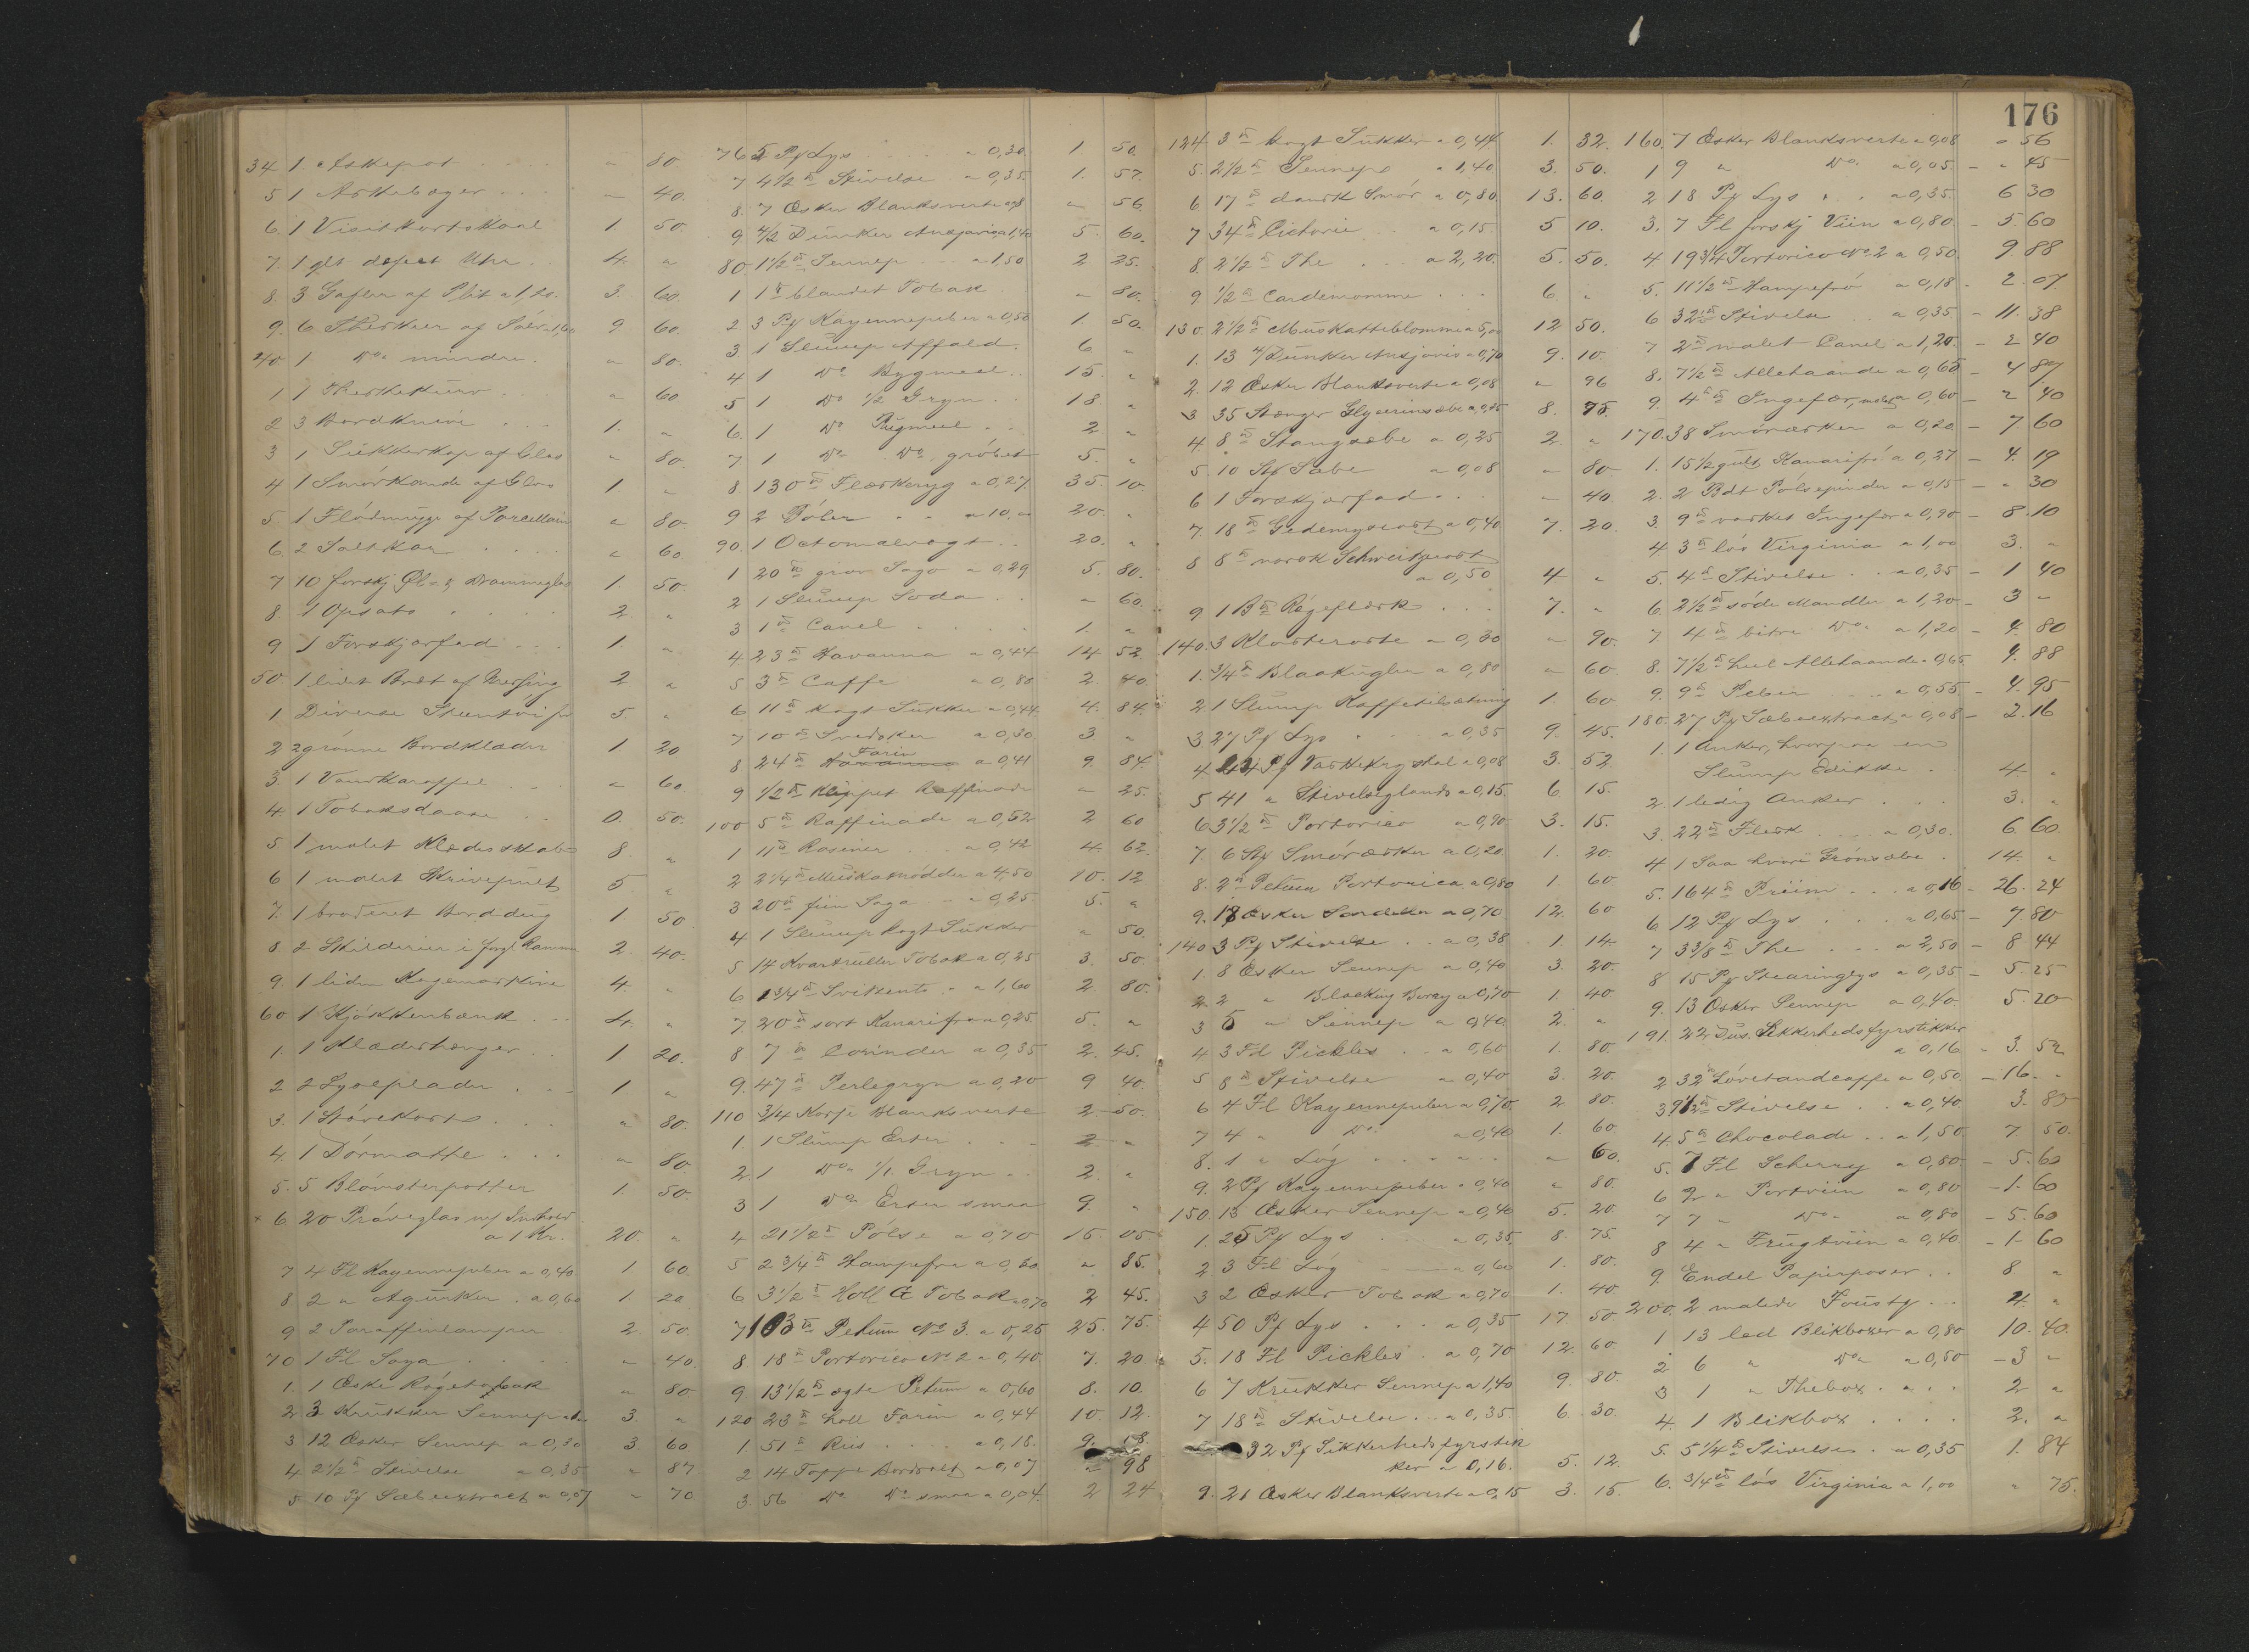 176
34 1 Askepot . . . . " 80.
5 1 Askebæger . . . " 40.
6. 1 Visitkortskaal 1. 50.
7. 1 glt defect Uhr . . 4. "
8. 3 Gafler af Plet a 1,20. 3. 60.
9. 6 Theskeer af Sølv a 1,60 9. 60.
40. 1 Do mindre. " 80.
1 1 Theskekurv . . . " 60
2 3 Bordknive . . . 1. "
3 1 Sukkerkop af Glas " 80.
4 1 Smørkande af Glas 1 "
5 1 Flødemugge af Porcellain " 80.
6. 2 Saltkar . . . . " 60.
7 10 forskj Øl- & Dramme­glas 1. 50
8. 1 Opsats . . . . . 2. "
9 1 Forskjærfad . . . 1. "
50 1 lidet Bræt af Messing 2 "
1 Diverse Steentøi for 5. "
2 2 grønne Bordklæder 1 20
3. 1 Vandkaraffel . . . " 60.
4. 1 Tobaksdaase . . 0. 50.
5 1 malet Klædesskab 8. "
6 1 malet Skrivepult 5. "
7. 1 broderet Borddug 1. 50
8 2 Skilderier i forgl Ramme 2. 40.
9 1 liden Kogemaskine 4. "
60. 1 Kjøkkenbænk . . . 4. "
1. 1 Klædehænger . . 1 20.
2 2 Lyseplader . . . 1 "
3. 1 Støvekost . . . " 80.
4. 1 Dørmatte . . . " 80.
5. 5 Blomsterpotter 1. 50.
6. 20 Prøveglas m/ Indhold
a 1 Kr. 20 "
7 4 Fl Kayennepeber a 0,40 1 60.
8 2 " Agurker . a 0,60 1 20
9 2 Paraffinlamper 2. 50.
70 1 Fl Soya . . . . " 40.
1. 1 Æske Røgetobak " 80.
2 3 Krukker Sennep 3. "
3 12 Æsker Sennep a 0,30 3 60.
4 2 1/2 ℔ Stivelse a 0,35 " 87
5 10 Pf Sæbeextract a 0,07 " 70
76 5 Pf Lys . . . . a 0,30. 1. 50.
7 4 1/2 ℔ Stivelse a 0,35. 1. 57.
8. 7 Æsker Blanksverte a 0,08 " 56
9 4/2 Dunker Ansjovis a 1,40 5. 60.
80. 1 1/2 ℔ Sennep . . a 1,50 2 25.
1 1 ℔ blandet Tobak " 80.
2 3 Pf Kayennepeber a 0,50 1. 50.
3. 1 Slump Affald. 6 "
4 1 Do Bygmeel . . 15. "
5 1 Do 1/2 Gryn . . 18 "
6. 1 Do Rugmeel . . 2 "
7 1 Do Do grøbet 5. "
8 130 ℔ Flæskeryg a 0,27. 35. 10.
9 2 Bøler . . a 10, " 20. "
90. 1 Octomalvægt . . 20. "
1 20 ℔ grov Sago a 0,29 5. 80.
2 1 Slump Soda . . " 60.
3 1 ℔ Canel . . . . . 1. "
4. 23 ℔ Havanna a 0,44 14 52.
5 3 ℔ Caffe a 0,80 2. 40.
6 11 ℔ Kogt Sukker a 0,44. 4. 84.
7 10 ℔ Svedsker a 0,30 3 "
8. 24 ℔ Havanna Farin a 0,41 9. 84.
9 1/2 ℔ Klippet Raffinade " 25.
100 5 ℔ Raffinade a 0,52 2 60
1 11 ℔ Rosener . . a 0,42 4. 62.
2 2 1/4 ℔ Muskatnødder a 4,50 10. 12
3 20 ℔ fiin Sago . . a 0,25 5. "
4 1 Slump Kogt Sukker " 50.
5 14 Kvartruller Tobak a 0,25 3. 50.
6 1 3/4 ℔ Svikkents . a 1,60 2. 80.
7. 20 ℔ sort Kanarifrø a 0,25. 5. "
8. 7 ℔ Corinder a 0,35 2. 45.
9. 47 ℔ Perlegryn a 0,20 9 40.
110 3/4 Korje Blanksverte 2 50.
1. 1 Slump Erter . . . 2 "
2. 1 Do 1/1 Gryn . . 2. "
3 1 Do Erter smaa 9. "
4 21 1/2 ℔ Pølse a 0,70 15. 05.
5 2 3/4 ℔ Hampefrø a 0,30 " 85.
6 3 1/2 ℔ Holl G Tobak a 0,70 2 45.
7 103 ℔ Petum No 3. a 0,25 25. 75.
8 18 ℔ Portorico No 2 a 0,40 7. 20
9 13 1/2 ℔ ægte Petum a 0,60 8. 10.
120 23 ℔ holl Farin a 0,44 10. 12.
1. 51 ℔ Riis . . . . a 0,18. 9. 18.
2 14 Toppe Bordsalt a 0,07 " 98
3. 56 Do Do smaa a 0,04. 2 24
124. 3 ℔ kogt Sukker a 0,44. 1. 32.
5. 2 1/2 ℔ Sennep a 1,40 3. 50.
6. 17 ℔ dansk Smør a 0,80. 13. 60.
7 34 ℔ Cichorie . . a 0,15. 5 10.
8. 2 1/2 ℔ The . . . a 2,20. 5. 50.
9 1/2 ℔ Cardemomme . . . 6. "
130. 2 1/2 ℔ Muskatteblomme a 5,00 12 50.
1. 13 4/ Dunker Ansjovis a 0,70 9. 10.
2. 12 Æsker Blanksverte a 0,08 " 96
3 35 Stænger Glycerinsæbe a 0,25 8. 75.
4. 8 ℔ Stangsæbe a 0,25 2. "
5. 10 Stk Sæbe a 0,08 " 80.
6 1 Forskjærfad . . . " 40.
7. 18 ℔ Gedemysost a 0,40 7. 20.
8 8 ℔ norsk Schweitzerost
a 0,50 4 "
9 1 B℔ Røgeflæsk . . . 7. "
140. 3 Klosteroste a 0,30 " 90.
1. 3/4 ℔ Blaakugler a 0,80 " 60
2 1 Slump Kaffetilsætning 1. 60
3. 27 Pf Lys . . . a 0,35 9. 45.
4 44 Pf Vaskekrystal a 0,08 3. 52.
5 41 " Stivelseglands a 0,15. 6 15.
6 3 1/2 ℔ Portorico a 0,90 3. 15.
7. 6 Stk Smøræsker a 0,20. 1. 20.
8. 2 ℔ Petum Portorica a 0,80 1. 60.
9. 18 Æsker Sardeller a 0,70 12. 60
140 3 Pf Stivelse . . a 0,38 1. 14.
1. 8 Æsker Sennep a 0,40 3. 20.
2. 2 " Blacking Berry a 0,70 1. 40.
3 5 " Sennep a 0,40. 2. "
4 3 Fl Pickles . . a 0,60 1. 80.
5 8 ℔ Stivelse a 0,40 3. 20.
6 4 Fl Kayennepeber a 0,70. 2 80.
7 4 " Do a 0,40 1. 60
8. 1 " Løg . . . . . " 60.
9. 2 Pf Kayennepeber a 0,40 " 80.
150 13 Æsker Sennep a 0,40 5. 20.
1. 25 Pf Lys . . a 0,35. 8. 75.
2. 3 Fl Løg a 0,60 1. 80.
3 2 Æsker Tobak a 0,70 1. 40.
4 50 Pf Lys . . . a 0,35 17. 50
5. 18 Fl Pickles . a 0,70 12. 60
6 7 Krukker Sennep a 1,40 9. 80.
7 18 ℔ Stivelse . . a 0,35. 6. 30.
32 Pf Sikkerhedsfyrstik
ker a 0,16. 5. 12.
9. 21 Æsker Blanksverte a 0,15 3. 15.
160. 7 Æsker Blanksverte a 0,08 " 56
1 9 " Do a 0,05. " 45
2 18 Pf Lys . . a 0,35. 6 30
3. 7 Fl forskj Viin a 0,80. 5. 60
4 19 3/4 Portorico No 2 a 0,50. 9. 88
5. 11 1/2 ℔ Hampefrø a 0,18 2. 07
6 32 1/2 ℔ Stivelse . . a 0,35 11. 38
7 2 ℔ malet Canel a 1,20. 2 40
8. 7 1/2 ℔ Allehaande a 0,65 4 87
9. 4 ℔ Ingefær, malet a 0,60 2 40
170. 38 Smøræsker a 0,20 7. 60
1. 15 1/2 gult Kanarifrø a 0,27 4. 19
2. 2 Bdt Pølsepinder a 0,15 " 30
3. 9 ℔ vasket Ingefær a 0,90 8. 10
4. 3 ℔ løs Virginia a 1,00 3. "
5. 4 ℔ Stivelse . . a 0,35 1 40
6. 2 1/2 ℔ søde Mandler a 1,20 3 "
7. 4 ℔ bitre Do a 1,20 4. 80
8. 7 1/2 ℔ heel Allehaande a 0,65 4. 88
9. 9 ℔ Peber . . . a 0,55. 4. 95
180. 27 Pf Sæbeextract a 0,08 2. 16
1. 1 Anker, hvorpaa en
Slump Edikke . 4 "
2. 1 ledig Anker . . . 3. "
3. 22 ℔ Flesk . . . a 0,30. 6. 60.
4 1 Saa hvori Grønsæbe . 14. "
5. 164 ℔ Priim . . . a 0,16 26. 24
6 12 Pf Lys . . . a 0,65 7. 80
7 3 3/8 ℔ The . . . a 2,50 8 44
8 15 Pf Stearinlys a 0,35 5. 25
9. 13 Æsker Sennep a 0,40 5. 20
191. 22 Dus. Sikkerhedsfyrstikker
a 0,16 3. 52
2 32 ℔ Løvetandcaffe a 0,50 16. "
3 9 1/2 ℔ Stivelse . . a 0,40. 3. 80
4. 5 ℔ Chocolade . . a 1,50. 7. 50.
5. 7 Fl Scherry a 0,80 5. 60
6 2 " Portviin a 0,80 1. 60
7 7 " Do a 0,80 5. 60
8 4 " Frugtviin a 0,40 1. 60
9. Endel Papirposer . . 8 "
200. 2 malede . . . 4. "
1 13 led Blikboxer a 0,80 10. 40.
2 6 " Do a 0,50 3 "
3 1 " Thebox . . . . 2 "
4. 1 Blikbox . . . . 2. "
5. 5 1/4 ℔ Stivelse . a 0,35 1. 84
6. 3/4 ℔ løs Virginia a 1,00 " 75.